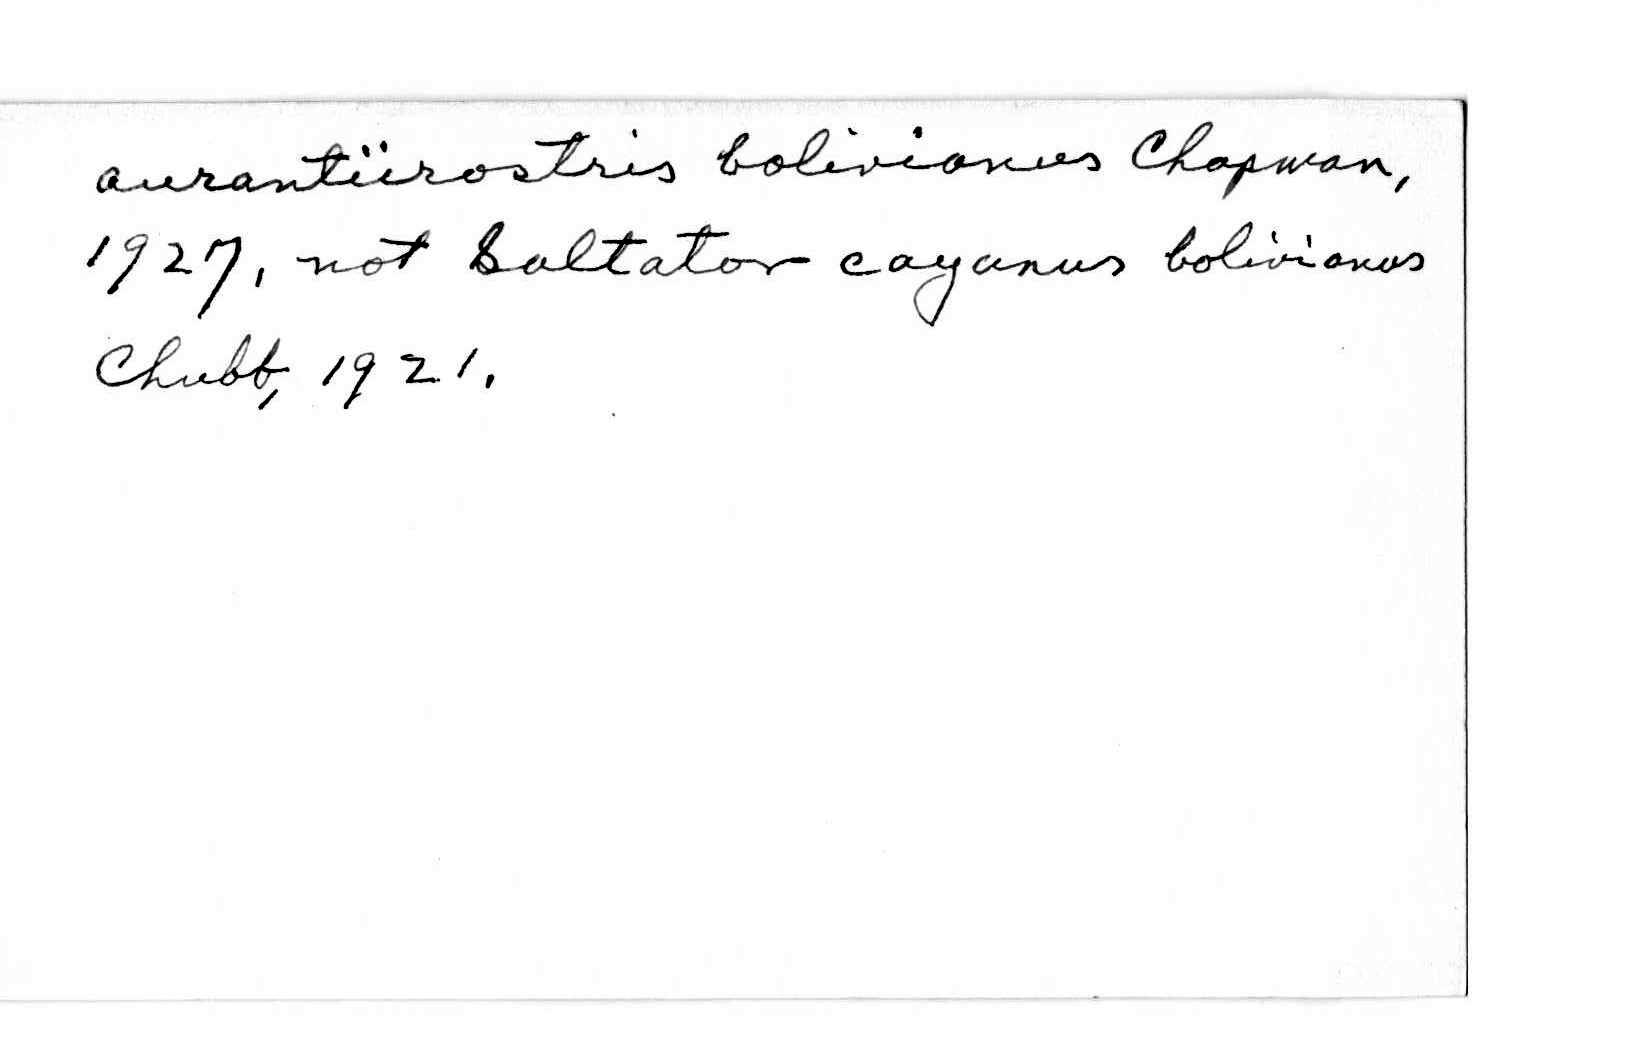 aurantiirostris bolivianus Chapman,
1927, not Saltator cayanus bolivianus
Chubb, 1921.